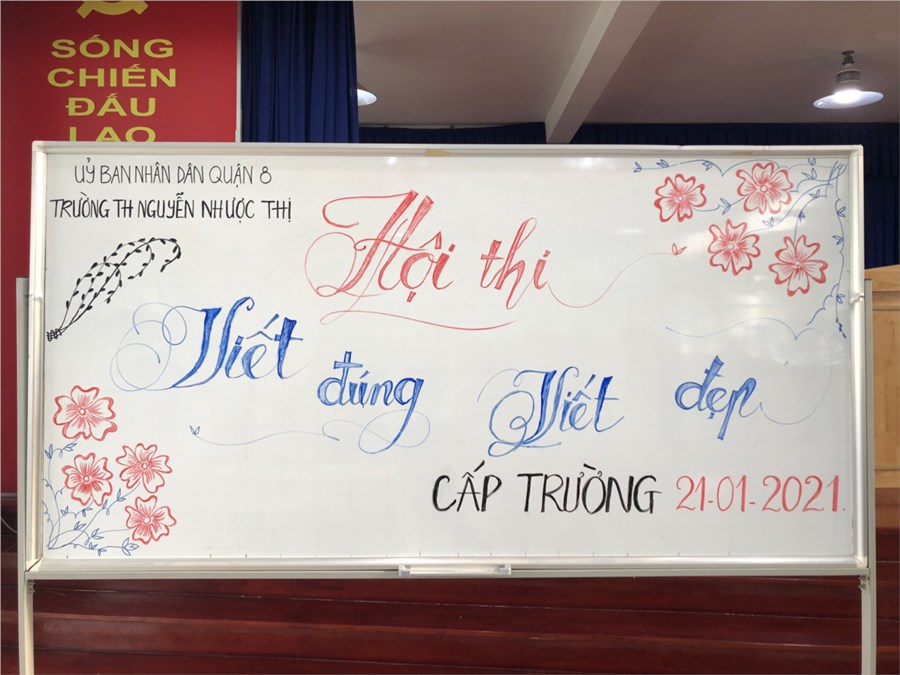 SỐNG
CHIẾN
ĐẤU
LAO
UỶ BAN NHÂN DÂN QUẬN 8
TRƯỜNG TH NGUYỄN NHƯỢC THỊ
Hội thi
Viết đúng Viết đẹp
CẤP TRƯỜNG 21-01-2021.